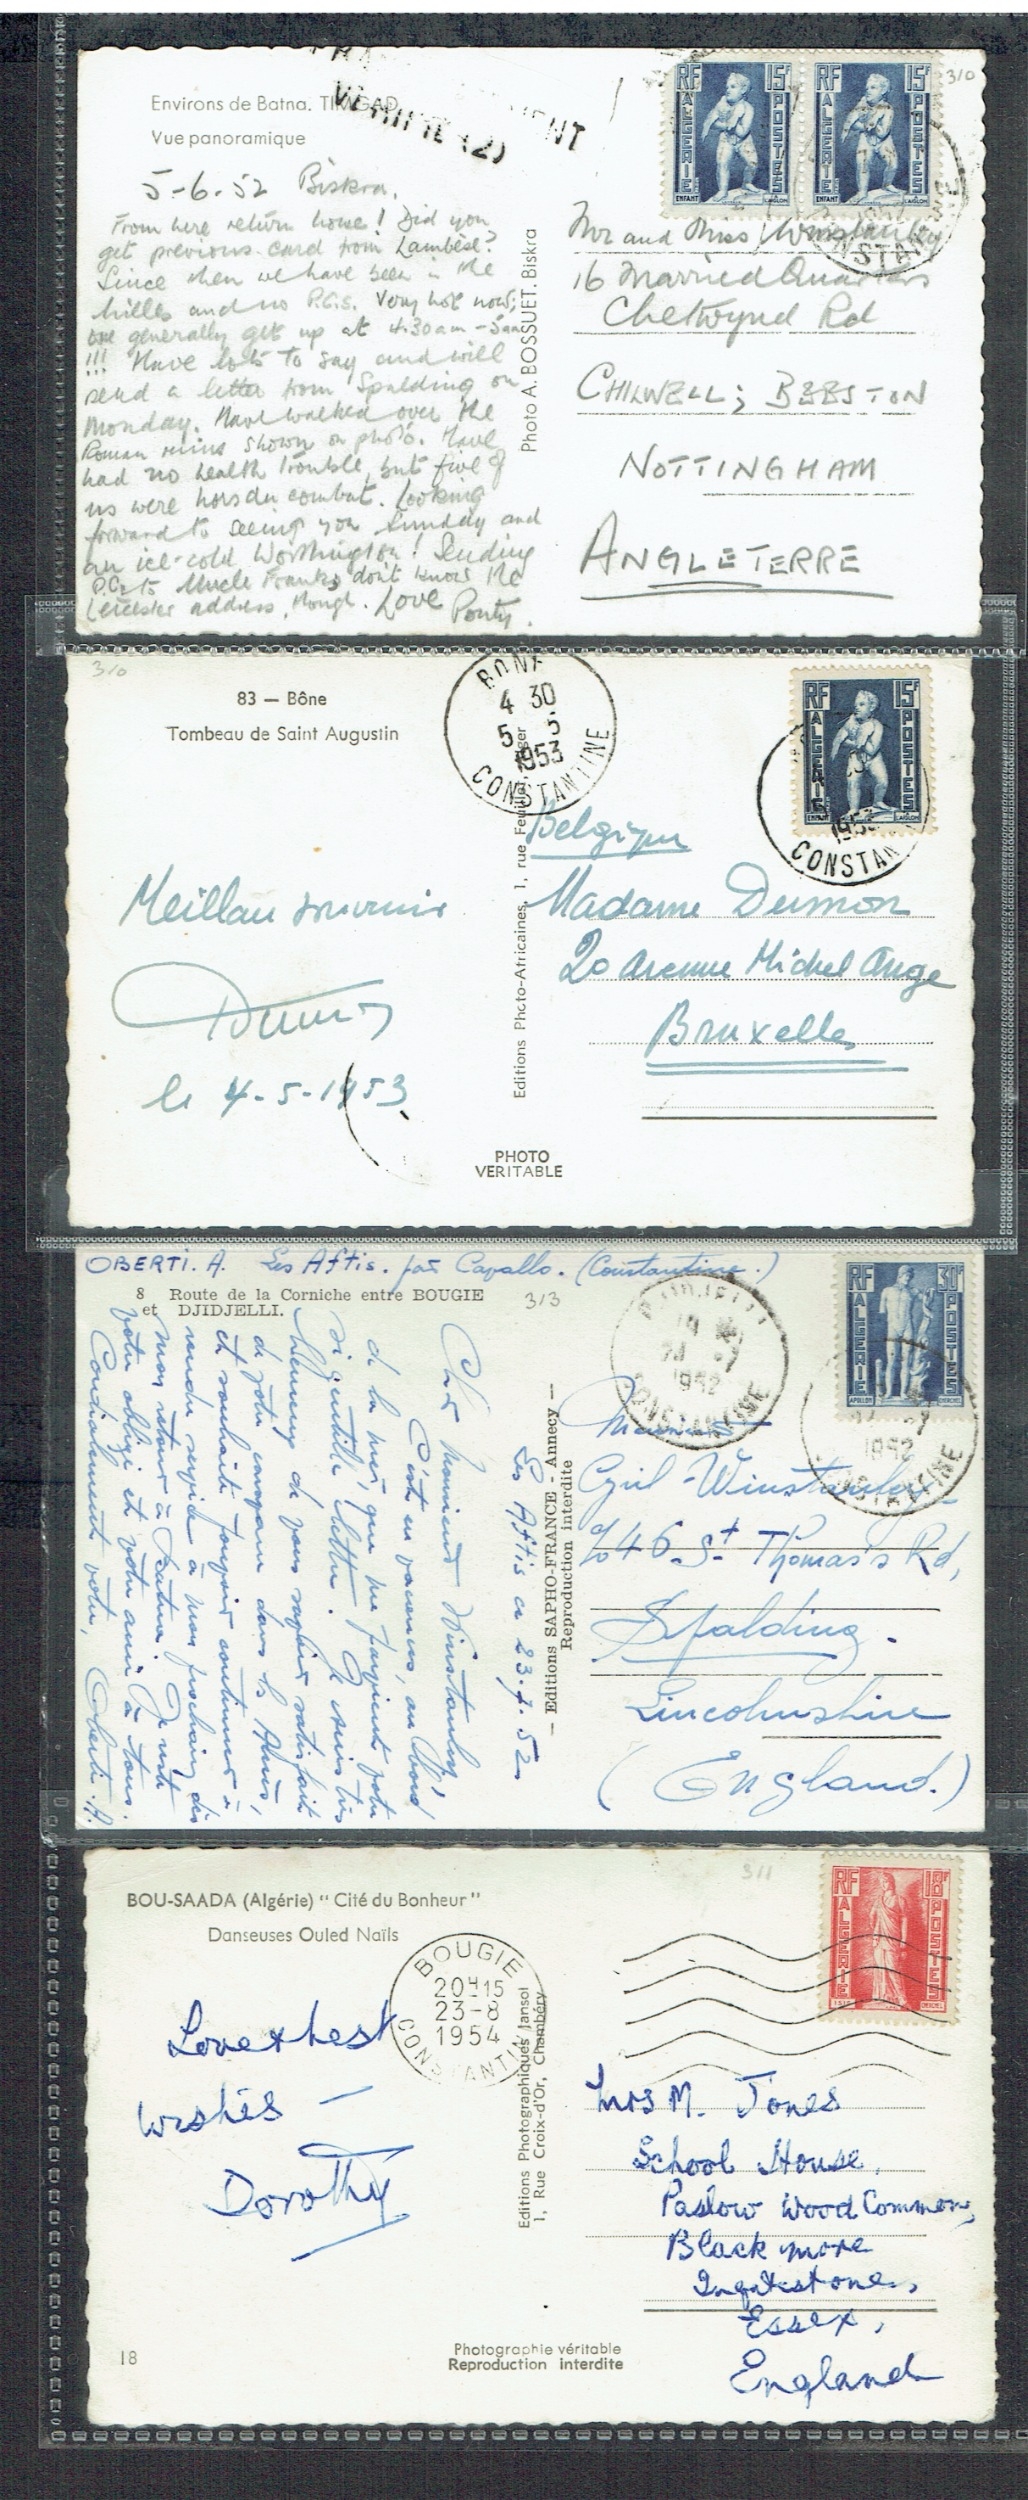 Environs de Batna. TIMGAD
Vue panoramique
5-6-52 Biskra.
From here return home! Did you
get previous card from Lambèse?
Since then we have been in the
hills and no P.C.s. Very hot now;
we generally get up at 4.30am - 5am
!!! Have lots to say and will
send a letter from Spalding on
Monday. Have walked over the
Roman ruins shown on photo. Have
had no health trouble, but five of
us were hors du combat. Looking
forward to seeing you Sunday and
an ice-cold Worthington! Sending
P.C. to Uncle Frank, don't know the
Leicester address, though. Love
Photo A. BOSSUET. Biskra
310
RF 15F
ALGERIE POSTES
ENFANT L'AIGLON
RF 15F
ALGERIE POSTES
ENFANT L'AIGLON
Mr and Miss Winstanley
16 Married Quarters
Chetwynd Rd
CHILWELL; BEESTON
NOTTINGHAM
ANGLETERRE
310
83 — Bône
Tombeau de Saint Augustin
BONE
4 30
5 - 5
1953
CONSTANTINE
RF 15F
ALGERIE POSTES
ENFANT L'AIGLON
1953
CONSTAN
Meilleur souvenir
le 4-5-1953
Editions Photo-Africaines, 1, rue Feuillet, Alger
PHOTO
VERITABLE
Belgique
Madame Dumon
20 Avenue Michel Ange
Bruxelles
OBERTI. A. Les Aftis. par Cavallo. (Constantine.)
8 Route de la Corniche entre BOUGIE
et DJIDJELLI.
313
Les Aftis ce 23-7-52
Cher Monsieur Winstanley,
C'est en vacances, au bord
de la mer, que me parvient votre
si gentille lettre. Je suis très
heureux de vous savoir satisfait
de votre voyage dans les Aurès,
et souhaite pouvoir continuer à
rendre service à mon prochain dès
mon retour à Batna. Je reste
votre obligé et votre ami à tous.
Cordialement votre, Oberti. A.
— Editions SAPHO-FRANCE - Annecy —
Reproduction interdite
DJIDJELLI
1952
CONSTANTINE
RF 30F
ALGERIE POSTES
APOLLON CHERCHEL
1952
CONSTANTINE
Monsieur
Cyril Winstanley
c/o 46 St Thomas's Rd,
Spalding.
Lincolnshire
(England.)
BOU-SAADA (Algérie) "Cité du Bonheur"
Danseuses Ouled Naïls
311
BOUGIE
20H15
23-8
1954
CONSTANTINE
RF 18F
ALGERIE POSTES
ISIS CHERCHEL
Love & best
wishes —
Dorothy
Editions Photographiques Jansol
1, Rue Croix-d'Or, Chambéry
Mrs M. Jones
School House,
Paslow Wood Common,
Blackmore
Ingatestone,
Essex,
England
18
Photographie véritable
Reproduction interdite